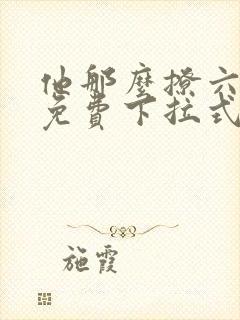 他那麼撩六
免費下拉式
施霞